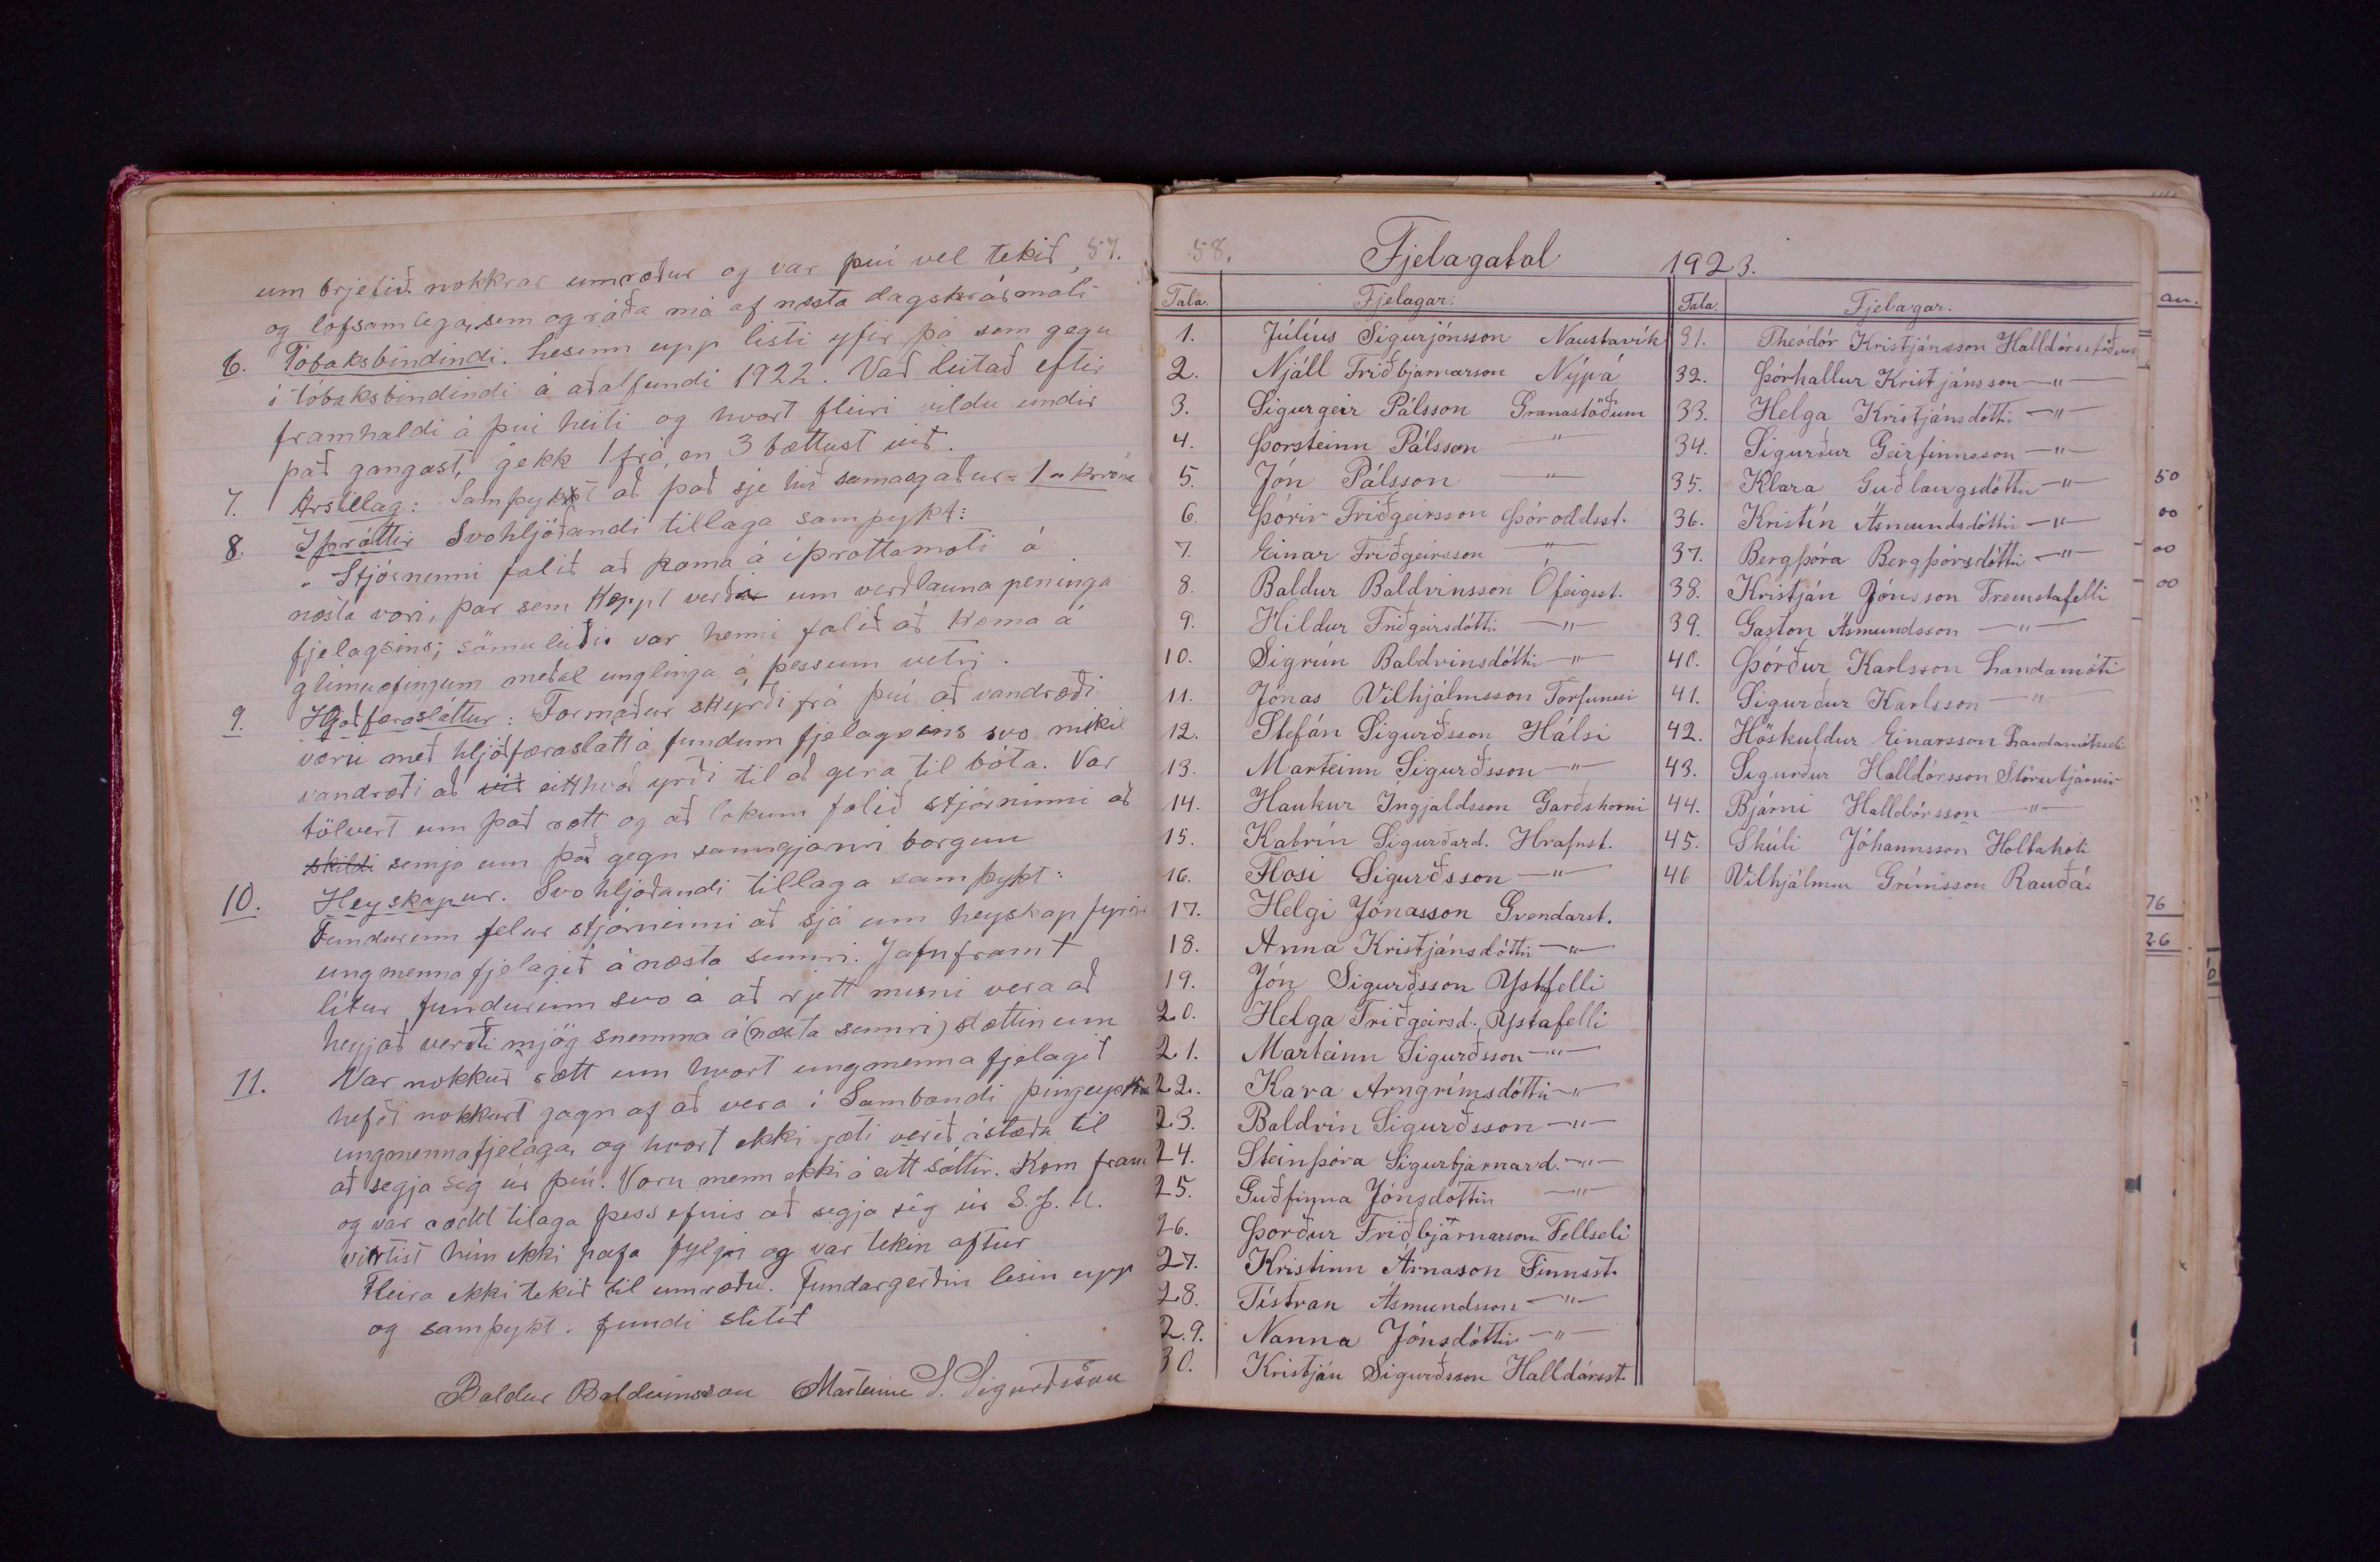 57.
um brjefið nokkrar umræður og var því vel tekið
og lofsamlega, sem og ráða má af næsta dagskrármáli
6. Tóbaksbindindi. Lesinn upp listi yfir þá sem gegn
í tóbaksbindindi á aðalfundi 1922. Vað leitað eftir
framhaldi á því heiti og hvort fleiri vildu undir
það gangast, gekk 1 frá, en 3 bættust við.
7. Árstillag: Samþykt að það sje hið sama og áður = 1 króna
8. Iþróttir Svohljóðandi tillaga samþykt:
"Stjórnenni falið að koma á íþrottamoti á
næsta vori, þar sem keppt verði um verðlauna peninga
fjelagsins; sömuleiðis var henni falið að koma á
glímuæfingum meðal unglinga á þessum vetri.
9. Hljóðfærasláttur: Formaður skýrði frá því að vandræði
væru með hljóðfæraslátt á fundum fjelagsins svo mikil
vandræði að við eitthvað yrði til að gera til bóta. Var
tölvert um það rætt og að lokum falið stjórninni að
skildi semja um það gegn sanngjarnri borgun
10. Heyskapur. Svohljóðandi tillaga samþykt:
Fundurinn felur stjórninni að sjá um heyskap fyrir
ungmennafjelagið á næsta sumri. Jafnframt
lítur fundurinn svo á að rjett muni vera að
heyjað verði mjög snemma á (næsta sumri) slættinum
11. Var nokkuð rætt um hvort ungmennafjelagið
hefði nokkurt gagn af að vera í Sambandi þingeyskra
ungmennafjelaga, og hvort ekki gæti verið ástæða til
að segja sig úr því. Voru menn ekki á eitt sáttir. Kom fram
og var rædd tilaga þess efnis að segja sig úr S.þ.U.
virtist hún ekki hafa fylgi og var tekin aftur
Fleira ekki tekið til umræðu. Fundargerðin lesin upp
og samþykt. fundi slitið
Baldur Baldvinsson Marteinn S. Sigurðsson
58.
Fjelagatal 1923.
Tala. Fjelagar.
1. Júlíus Sigurjónsson Naustavík
2. Njáll Friðbjarnarson Nýpá
3. Sigurgeir Pálsson Granastöðum
4. Þorsteinn Pálsson —"—
5. Jón Pálsson —"—
6. Þórir Friðgeirsson Þóroddsst.
7. Einar Friðgeirsson —"—
8. Baldur Baldvinsson Ófeigsst.
9. Hildur Friðgeirsdóttir —"—
10. Sigrún Baldvinsdóttir —"—
11. Jónas Vilhjálmsson Torfunesi
12. Stefán Sigurðsson Hálsi
13. Marteinn Sigurðsson —"—
14. Haukur Ingjaldsson Garðshorni
15. Katrín Sigurðard. Hrafnst.
16. Flosi Sigurðsson —"—
17. Helgi Jónasson Gvendarst.
18. Anna Kristjánsdóttir —"—
19. Jón Sigurðsson Ystafelli
20. Helga Friðgeirsd., Ystafelli
21. Marteinn Sigurðsson —"—
22. Kara Arngrímsdóttir —"—
23. Baldvin Sigurðsson —"—
24. Steinþóra Sigurbjarnard. —"—
25. Guðfinna Jónsdóttir —"—
26. Þorður Friðbjarnarson Fellseli
27. Kristinn Árnason Finnsst.
28. Tístran Ásmundsson —"—
29. Nanna Jónsdóttir —"—
30. Kristján Sigurðsson Halldórsst.
Tala. Fjelagar.
31. Theódór Kristjánsson Halldórsstöðum
32. Þórhallur Kristjánsson —"—
33. Helga Kristjánsdóttir —"—
34. Sigurður Geirfinnsson —"—
35. Klara Guðlaugsdóttir —"—
36. Kristín Ásmundsdóttir —"—
37. Bergþóra Bergþórsdóttir —"—
38. Kristján Jónsson Fremstafelli
39. Gaston Ásmundsson —"—
40. Þórður Karlsson Landamóti
41. Sigurður Karlsson —"—
42. Höskuldur Einarsson Landamótsseli
43. Sigurður Halldórsson Stórutjörnir
44. Bjárni Halldórsson —"—
45. Skúli Jóhannsson Holtakoti
46 Vilhjálmur Grímsson Rauðá.
au.
50
00
00
00
76
26